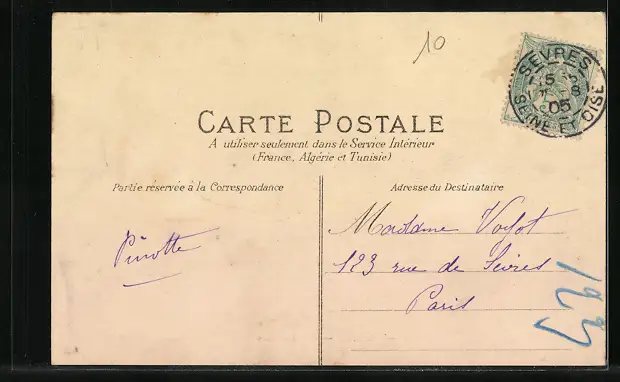 10
SEVRES
15
8
05
SEINE ET OISE
CARTE POSTALE
A utiliser seulement dans le Service Intérieur
(France, Algérie et Tunisie)
Partie réservée à la Correspondance
Adresse du Destinataire
Pinotte
Madame
123 rue de Sèvres
Paris